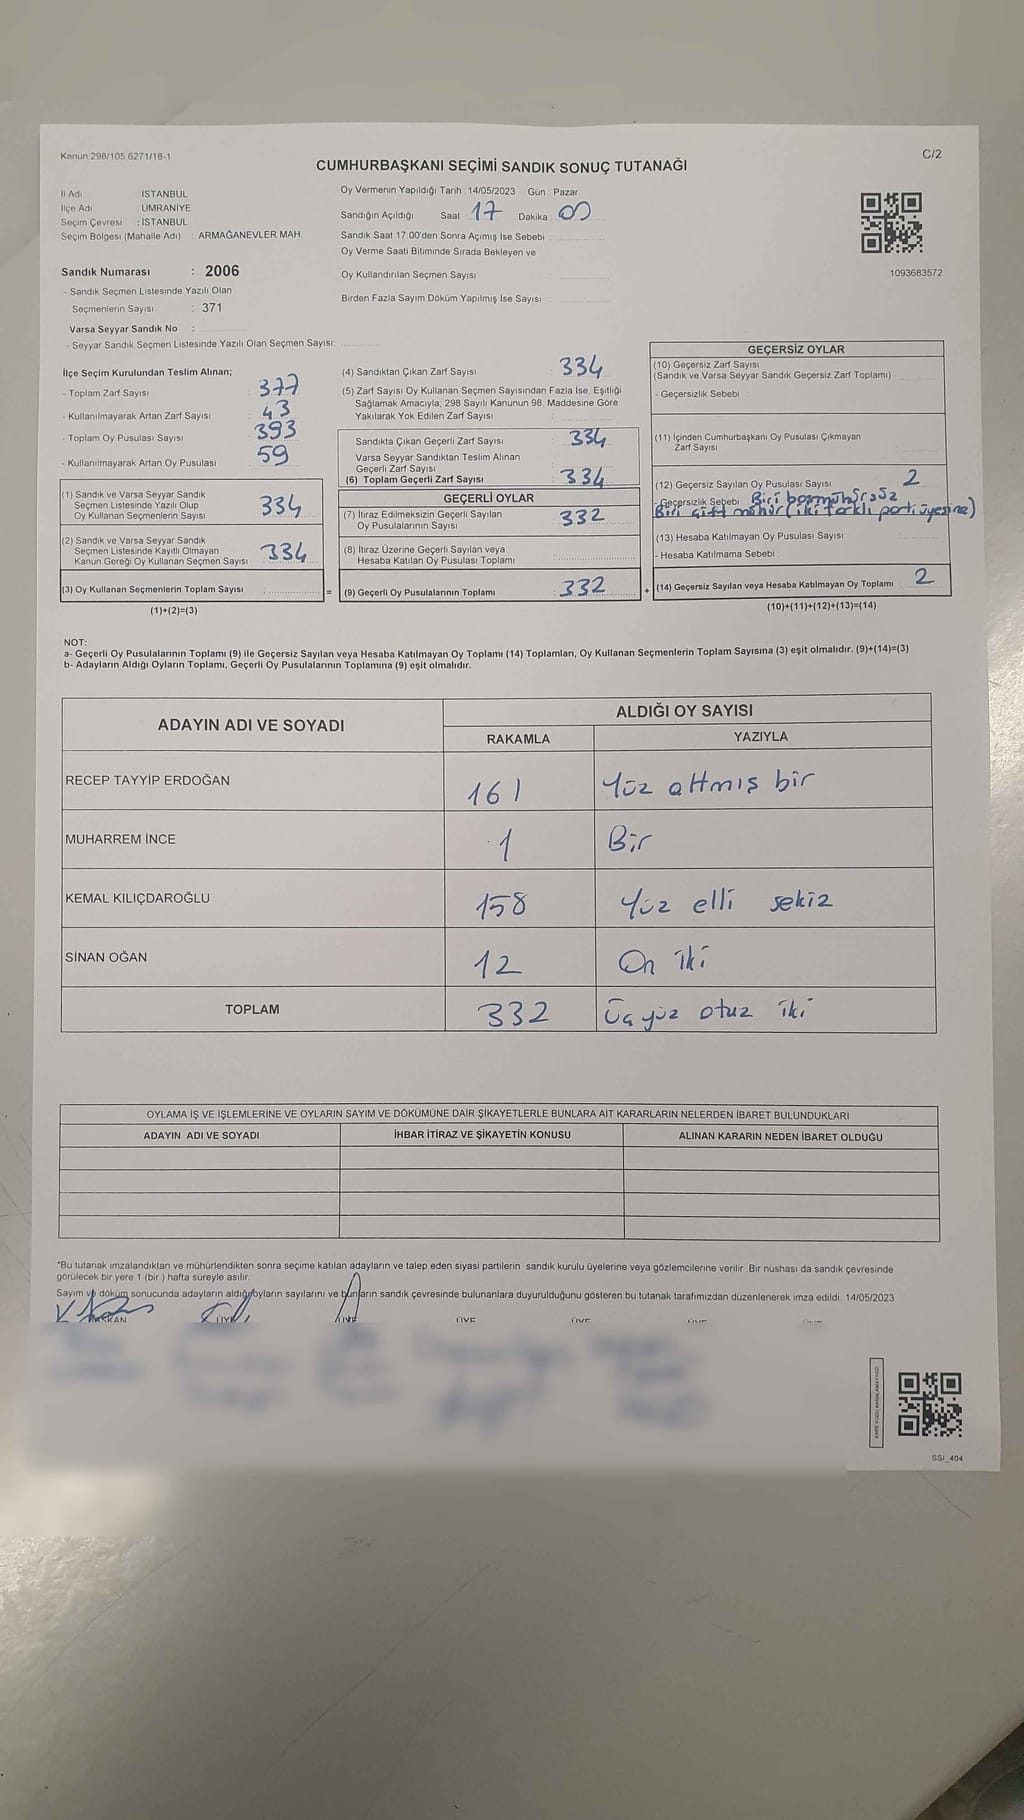 Kanun:298/105 6271/18-1
C/2
CUMHURBAŞKANI SEÇİMİ SANDIK SONUÇ TUTANAĞI
İl Adı İSTANBUL
İlçe Adı ÜMRANİYE
Seçim Çevresi : İSTANBUL
Seçim Bölgesi (Mahalle Adı) : ARMAĞANEVLER MAH.
Sandık Numarası : 2006
- Sandık Seçmen Listesinde Yazılı Olan
Seçmenlerin Sayısı : 371
Varsa Seyyar Sandık No :
- Seyyar Sandık Seçmen Listesinde Yazılı Olan Seçmen Sayısı:
Oy Vermenin Yapıldığı Tarih : 14/05/2023 Gün : Pazar
Sandığın Açıldığı Saat 17 Dakika
Sandık Saat 17:00'den Sonra Açımış İse Sebebi :
Oy Verme Saati Bitiminde Sırada Bekleyen ve
Oy Kullandırılan Seçmen Sayısı :
Birden Fazla Sayım Döküm Yapılmış İse Sayısı :
1093683572
İlçe Seçim Kurulundan Teslim Alınan;
- Toplam Zarf Sayısı 377
- Kullanılmayarak Artan Zarf Sayısı 43
- Toplam Oy Pusulası Sayısı 393
- Kullanılmayarak Artan Oy Pusulası 59
(1) Sandık ve Varsa Seyyar Sandık
Seçmen Listesinde Yazılı Olup
Oy Kullanan Seçmenlerin Sayısı 334
(2) Sandık ve Varsa Seyyar Sandık
Seçmen Listesinde Kayıtlı Olmayan
Kanun Gereği Oy Kullanan Seçmen Sayısı 334
(3) Oy Kullanan Seçmenlerin Toplam Sayısı
(1)+(2)=(3)
=
(4) Sandıktan Çıkan Zarf Sayısı 334
(5) Zarf Sayısı Oy Kullanan Seçmen Sayısından Fazla İse, Eşitliği
Sağlamak Amacıyla; 298 Sayılı Kanunun 98. Maddesine Göre
Yakılarak Yok Edilen Zarf Sayısı
Sandıkta Çıkan Geçerli Zarf Sayısı 334
Varsa Seyyar Sandıktan Teslim Alınan
Geçerli Zarf Sayısı
(6) Toplam Geçerli Zarf Sayısı 334
GEÇERLİ OYLAR
(7) İtiraz Edilmeksizin Geçerli Sayılan
Oy Pusulalarının Sayısı 332
(8) İtiraz Üzerine Geçerli Sayılan veya
Hesaba Katılan Oy Pusulası Toplamı
(9) Geçerli Oy Pusulalarının Toplamı 332
+
GEÇERSİZ OYLAR
(10) Geçersiz Zarf Sayısı
(Sandık ve Varsa Seyyar Sandık Geçersiz Zarf Toplamı)
- Geçersizlik Sebebi
(11) İçinden Cumhurbaşkanı Oy Pusulası Çıkmayan
Zarf Sayısı
(12) Geçersiz Sayılan Oy Pusulası Sayısı 2
- Geçersizlik Sebebi Biri boşmühürsüz
Biri çift mühür (iki farklı parti üyesine)
(13) Hesaba Katılmayan Oy Pusulası Sayısı
- Hesaba Katılmama Sebebi
(14) Geçersiz Sayılan veya Hesaba Katılmayan Oy Toplamı 2
(10)+(11)+(12)+(13)=(14)
NOT:
a- Geçerli Oy Pusulalarının Toplamı (9) ile Geçersiz Sayılan veya Hesaba Katılmayan Oy Toplamı (14) Toplamları, Oy Kullanan Seçmenlerin Toplam Sayısına (3) eşit olmalıdır. (9)+(14)=(3)
b- Adayların Aldığı Oyların Toplamı, Geçerli Oy Pusulalarının Toplamına (9) eşit olmalıdır.
ADAYIN ADI VE SOYADI ALDIĞI OY SAYISI
RAKAMLA YAZIYLA
RECEP TAYYİP ERDOĞAN 161 Yüz altmış bir
MUHARREM İNCE 1 Bir
KEMAL KILIÇDAROĞLU 158 Yüz elli sekiz
SİNAN OĞAN 12 On iki
TOPLAM 332 Üç yüz otuz iki
OYLAMA İŞ VE İŞLEMLERİNE VE OYLARIN SAYIM VE DÖKÜMÜNE DAİR ŞİKAYETLERLE BUNLARA AİT KARARLARIN NELERDEN İBARET BULUNDUKLARI
ADAYIN ADI VE SOYADI İHBAR İTİRAZ VE ŞİKAYETİN KONUSU ALINAN KARARIN NEDEN İBARET OLDUĞU
*Bu tutanak imzalandıktan ve mühürlendikten sonra seçime katılan adayların ve talep eden siyasi partilerin sandık kurulu üyelerine veya gözlemcilerine verilir. Bir nüshası da sandık çevresinde
görülecek bir yere 1 (bir ) hafta süreyle asılır.
Sayım ve döküm sonucunda adayların aldığı oyların sayılarını ve bunların sandık çevresinde bulunanlara duyurulduğunu gösteren bu tutanak tarafımızdan düzenlenerek imza edildi. 14/05/2023
SSI_404